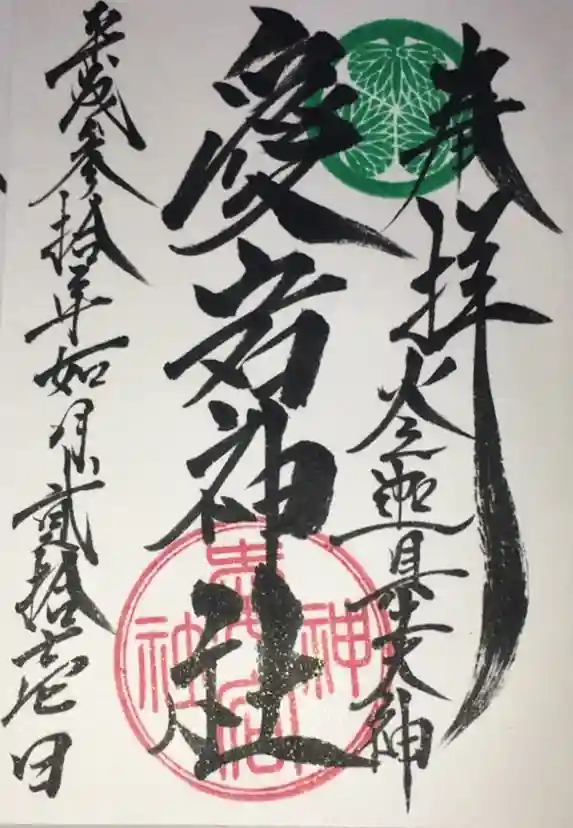 奉拝
火之迦具土大神
愛宕神社
平成参拾年如月貳拾壱日
愛宕神社